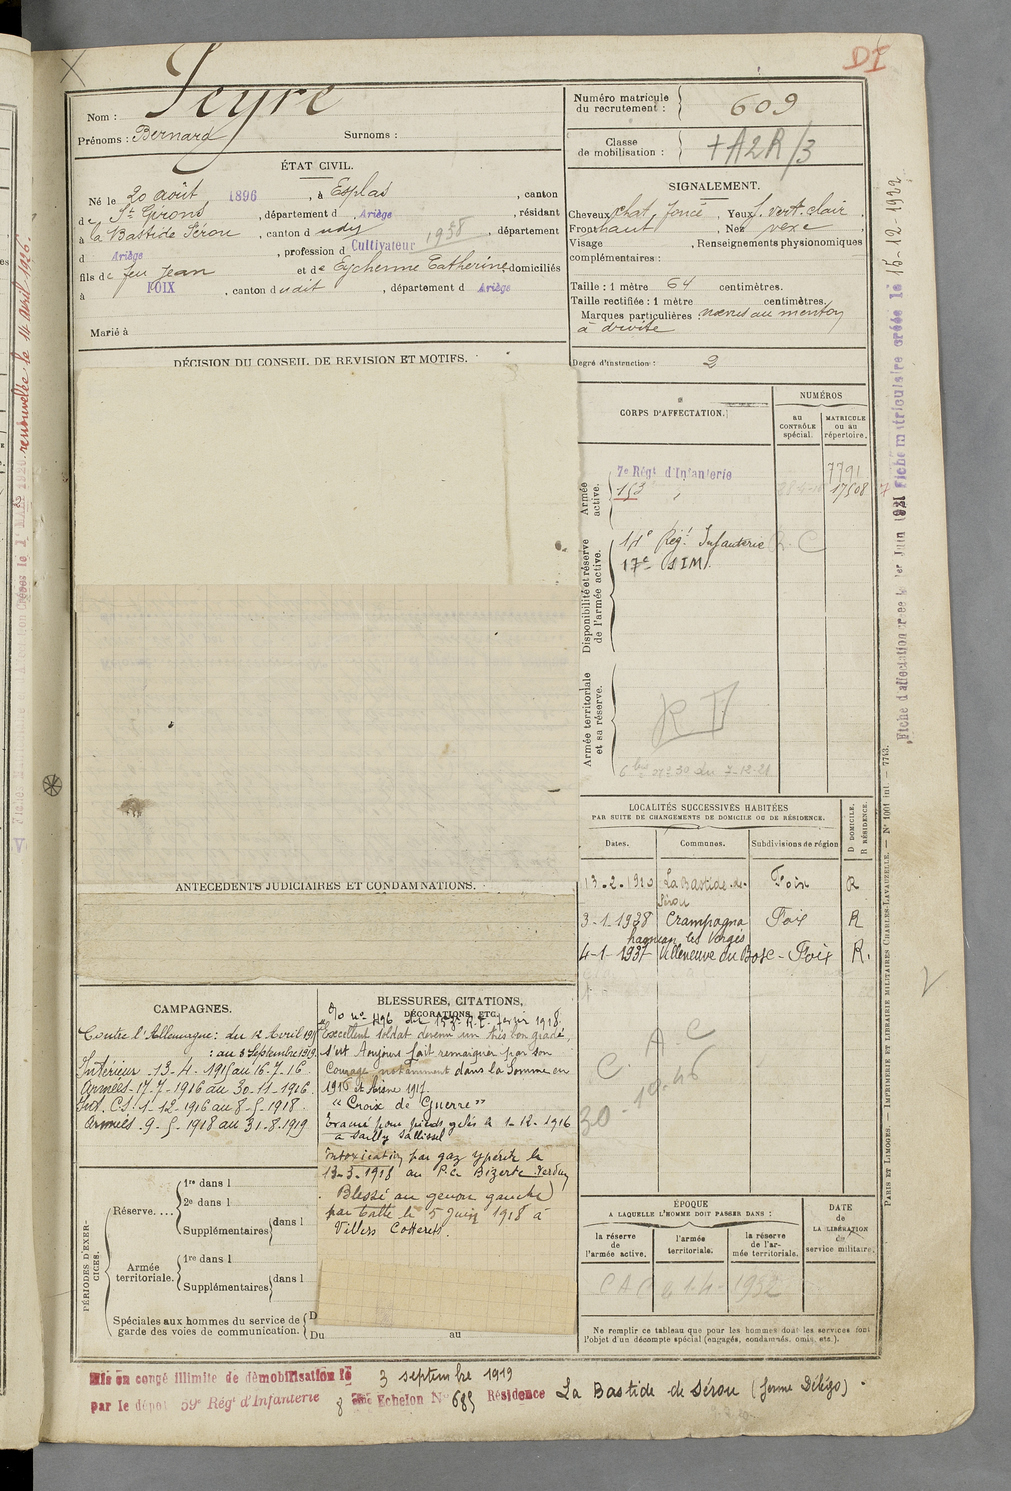 DI
Nom : Peyre
Prénoms : Bernard Surnoms :
Numéro matricule du recrutement : 609
Classe de mobilisation : + A2R/3
ÉTAT CIVIL.
Né le 20 août 1896, à Esplas, canton
de St Girons, département d Ariège, résidant
à La Bastide Sérou, canton d udit, département
d Ariège, profession d Cultivateur 1938
fils de feu Jean et de Eychenne Catherine domiciliés
à FOIX, canton dudit, département d Ariège
Marié à
SIGNALEMENT.
Cheveux chat, foncé, Yeux vert clair,
Front haut, Nez vexe,
Visage , Renseignements physionomiques
complémentaires :
Taille : 1 mètre 64 centimètres.
Taille rectifiée : 1 mètre centimètres.
Marques particulières : nævus au menton
à droite
Degré d'instruction : 2
DÉCISION DU CONSEIL DE REVISION ET MOTIFS.
CORPS D'AFFECTATION.
NUMÉROS
AU CONTRÔLE spécial.
MATRICULE ou au répertoire.
Armée active.
7e Régt d'Infanterie 7791
153 " 17508
Disponibilité et réserve de l'armée active.
14e Rég. Infanterie
17e SIM
Armée territoriale et sa réserve.
du 7-12-21
LOCALITÉS SUCCESSIVES HABITÉES
PAR SUITE DE CHANGEMENTS DE DOMICILE OU DE RÉSIDENCE.
Dates. Communes. Subdivisions de région D DOMICILE. R RÉSIDENCE.
13-2-1920 La Bastide-de-Sérou Foix R
3-1-1938 Crampagna Foix R
4-1-1937 Villeneuve du Bosc - Foix R.
A.C
C.
30-10-46
ANTÉCÉDENTS JUDICIAIRES ET CONDAMNATIONS.
CAMPAGNES.
Contre l'Allemagne : du 12 Avril 191
: au 3 Septembre 1919.
Intérieur - 13-4-1915 au 16-7-16
Armées - 17-7-1916 au 30-11-1916
Int. CS. 1-12-1916 au 8-5-1918
Armées - 9-5-1918 au 31-8-1919
BLESSURES, CITATIONS,
DÉCORATIONS, ETC.
O/o no 1196 du 153e R.I. 1918
"Excellent soldat devenu un très bon gradé,
s'est toujours fait remarquer par son
courage notamment dans la Somme en
1916 et Aisne 1917.
"Croix de Guerre"
Evacué pour pieds gelés le 1-12-1916
à Sailly Saillisel
Intoxication par gaz ypérite le
13-3-1918 au P.C. Bizerte Verdun
Blessé au genou gauche
par balle le 5 juin 1918 à
Villers Cotterets.
PÉRIODES D'EXERCICES.
Réserve....
1re dans l
2e dans l
Supplémentaires dans l
Armée territoriale.
1re dans l
Supplémentaires dans l
Spéciales aux hommes du service de
garde des voies de communication.
D
Du au
ÉPOQUE
A LAQUELLE L'HOMME DOIT PASSER DANS :
la réserve de l'armée active.
l'armée territoriale.
la réserve de l'armée territoriale.
DATE de LA LIBÉRATION du service militaire.
1-4-1932
Ne remplir ce tableau que pour les hommes dont les services font
l'objet d'un décompte spécial (engagés, condamnés, omis, etc.).
Mis en congé illimité de démobilisation le 3 septembre 1919
par le dépôt 59e Régt d'Infanterie 8 ème Echelon No 685 Résidence La Bastide de Sérou (ferme Délégo).
Fiche d'affectation créée le 1er Juin 1921 Fiche matriculaire créée le 15-12-1922
PARIS ET LIMOGES. — IMPRIMERIE ET LIBRAIRIE MILITAIRES CHARLES-LAVAUZELLE. — No 1001 int. — 7743.
renouvellée le 14 avril 1926.